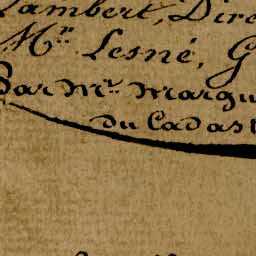 Lambert, Dire
Mr. Lesné, G
Par Mr. Margu
du Cadast